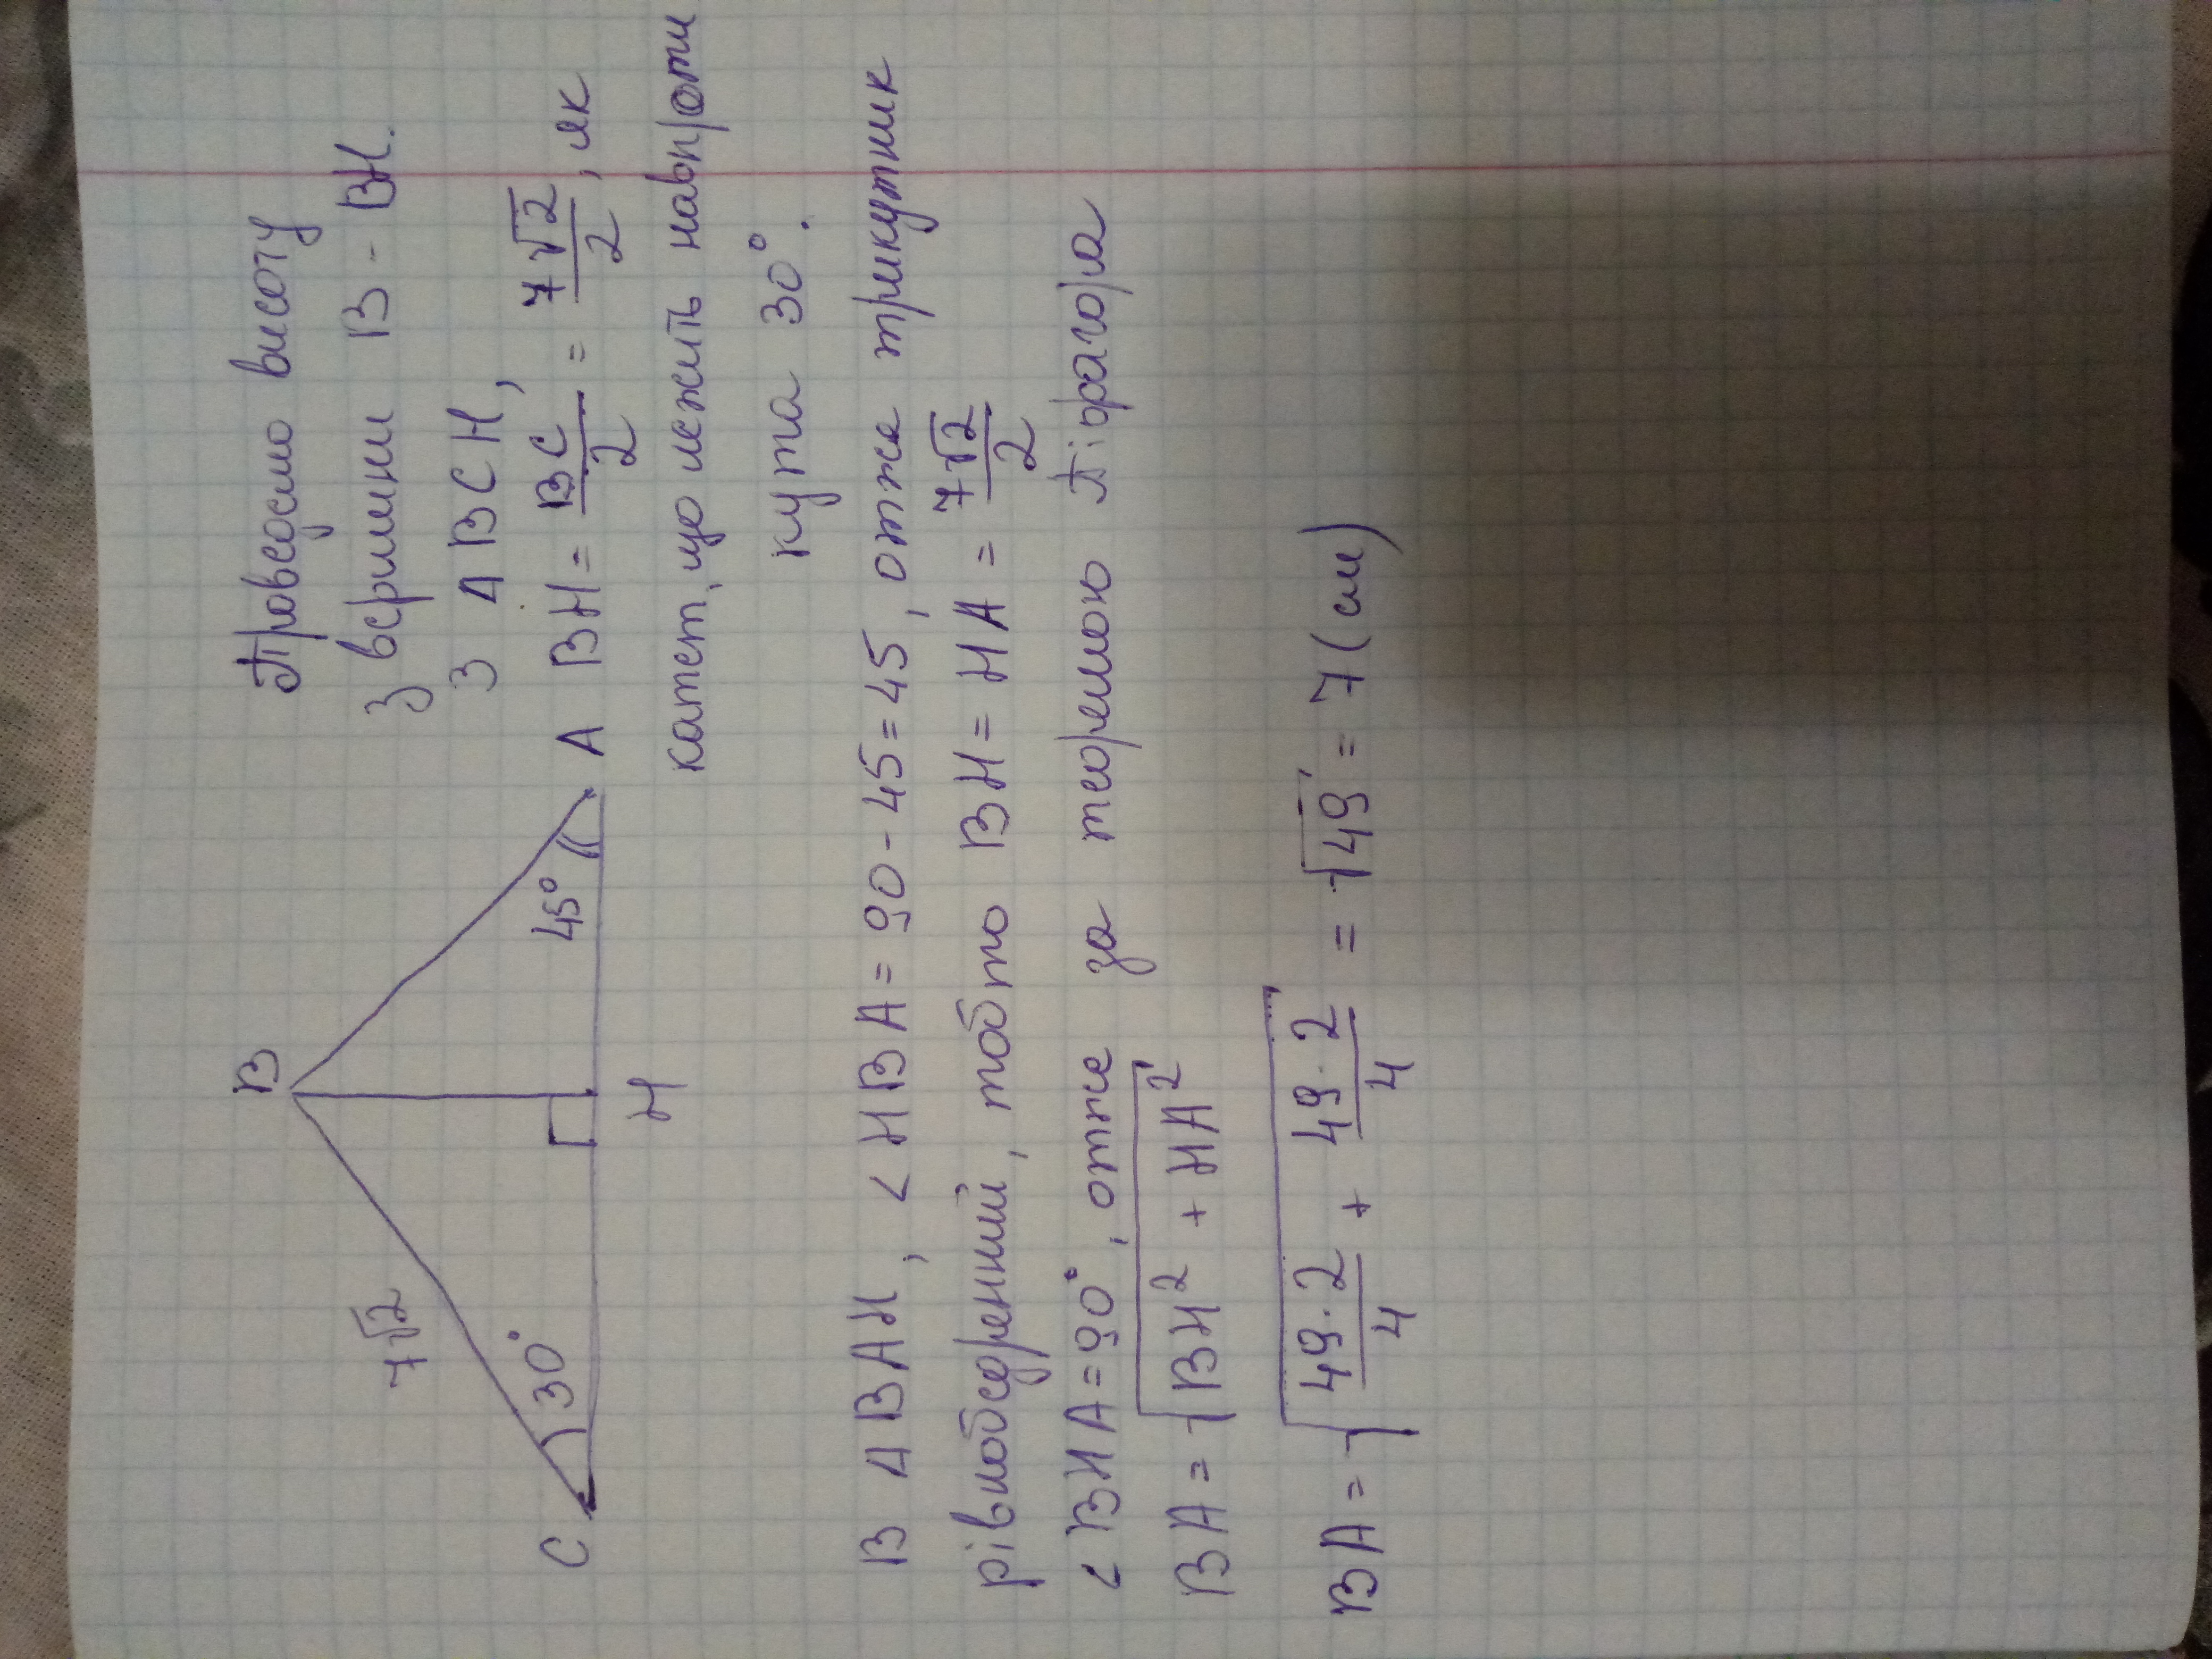 Проведемо висоту
з вершини B - BH.
З Δ BCH,
BH = BC/2 = 7√2/2, як
катет, що лежить навпроти
кута 30°.
B
7√2
30°
45°
C
H
A
В Δ BAH, < HBA = 90 - 45 = 45, отже трикутник
рівнобедренний, тобто BH = HA = 7√2/2
< BHA = 90°, отже за теоремою Піфагора
BA = √(BH² + HA²)
BA = √(49·2/4 + 49·2/4) = √49 = 7 (см)